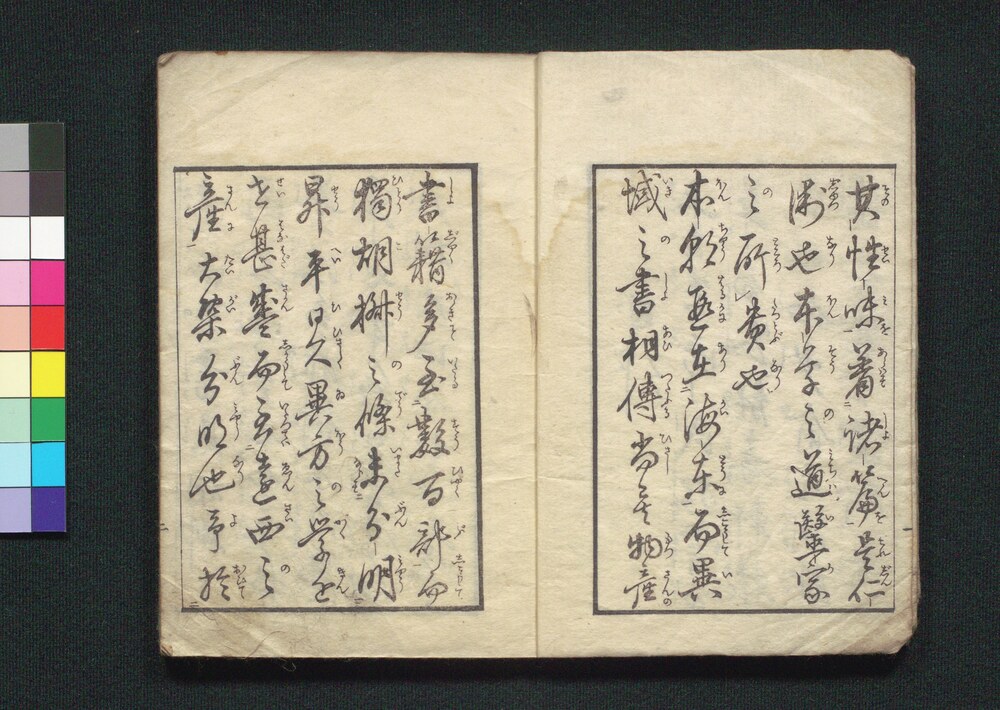 其性味著諸篇是仁
術也本草之道醫家
之所貴也
本朝遙在海東而異
域之書相傳尚矣物産
書籍多至數百部而
獨胡椒之條未分明
昇平日久異方之學近
世甚盛而至遠西之
産大槩分明也予於